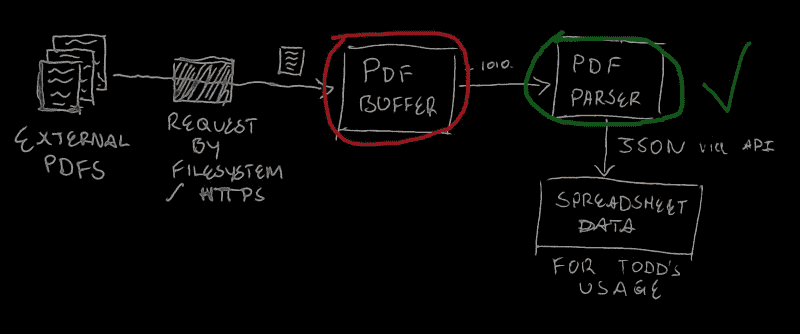 EXTERNAL
PDFS
REQUEST
BY
FILESYSTEM
/ HTTPS
PDF
BUFFER
1010.
PDF
PARSER
JSON via API
SPREADSHEET
DATA
FOR TODD'S
USAGE